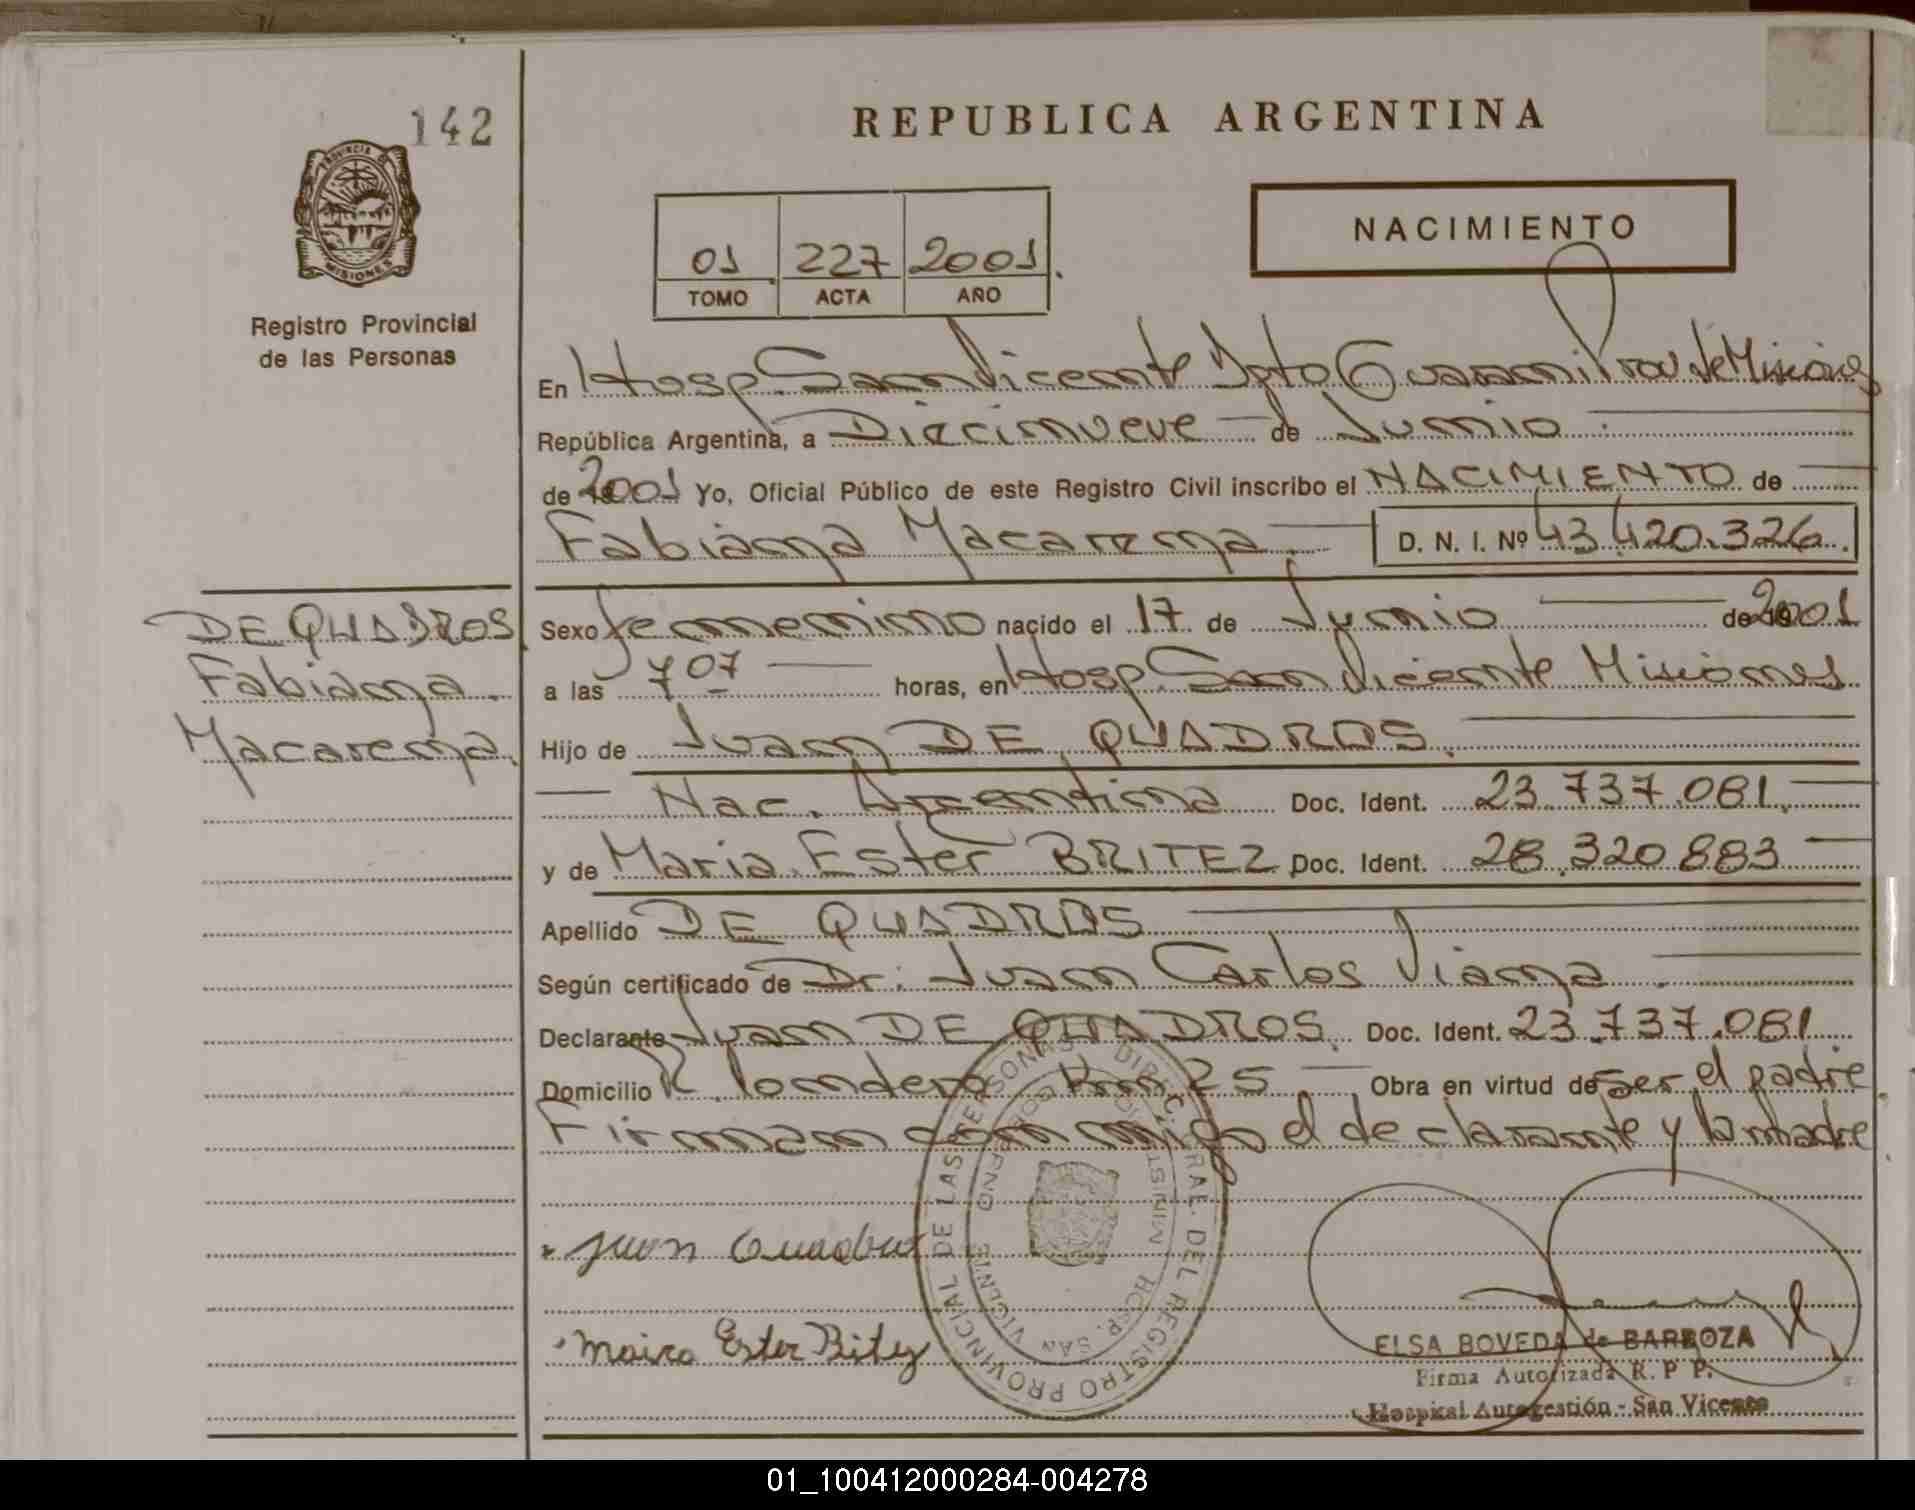 142
REPUBLICA ARGENTINA
PROVINCIA DE MISIONES
Registro Provincial
de las Personas
01 227 2001
TOMO ACTA AÑO
NACIMIENTO
En Hosp. San Vicente Dpto Guarani Prov de Misiones
República Argentina, a Diecinueve de Junio
de 2001 Yo, Oficial Público de este Registro Civil inscribo el NACIMIENTO de
Fabiana Macarena. D. N. I. Nº 43.420.326.
DE QUADROS
Fabiana
Macarena.
Sexo femenino nacido el 17 de Junio de 2001
a las 7 07 horas, en Hosp. San Vicente Misiones
Hijo de Juan DE QUADROS.
Nac. Argentina Doc. Ident. 23.737.081.
y de Maria Ester BRITEZ Doc. Ident. 28.320.883
Apellido DE QUADROS
Según certificado de Dr. Juan Carlos Viana
Declarante Juan DE QUADROS. Doc. Ident. 23.737.081
Domicilio Km 25 Obra en virtud de ser el padre
Firman con migo el declarante y la madre
DIRECC. GRAL. DEL REGISTRO PROVINCIAL DE LAS PERSONAS
HOSP. SAN VICENTE
Juan
Maira Ester Bitez
ELSA BOVEDA de BARBOZA
Firma Autorizada R. P P.
Hospital Autogestión - San Vicente
01_100412000284-004278